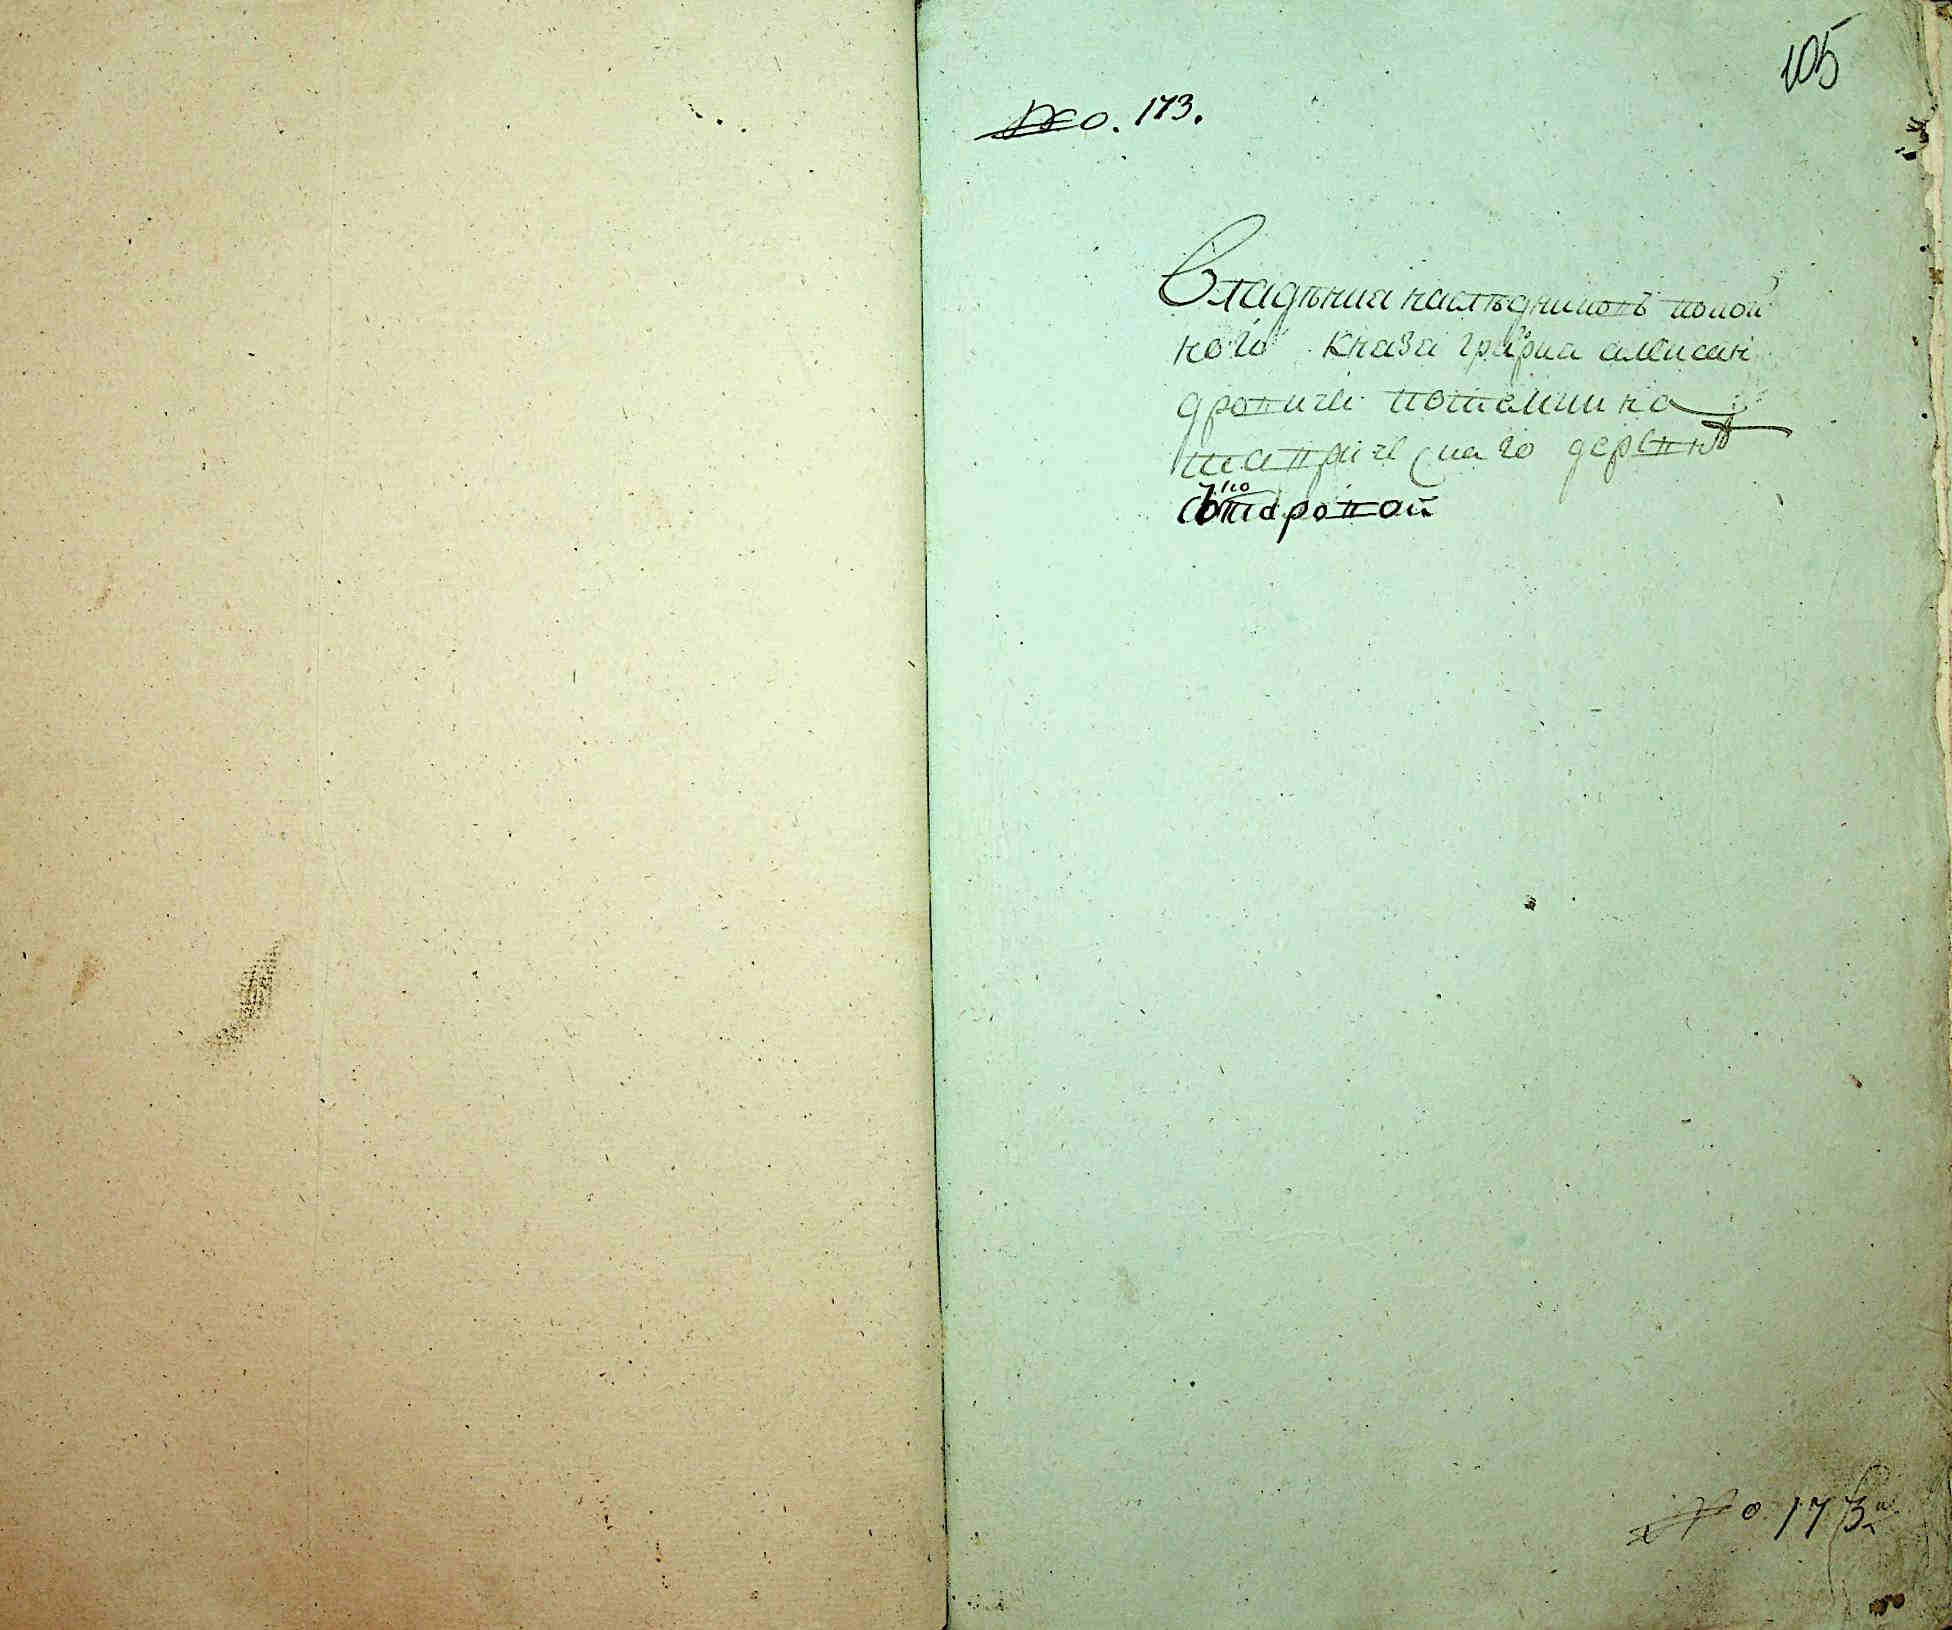 105
No. 173.
Владѣния наслѣдниковъ покой
ного князя григория алексан
дровича потемкина
таврическаго деревнѣ
старовой
No 173